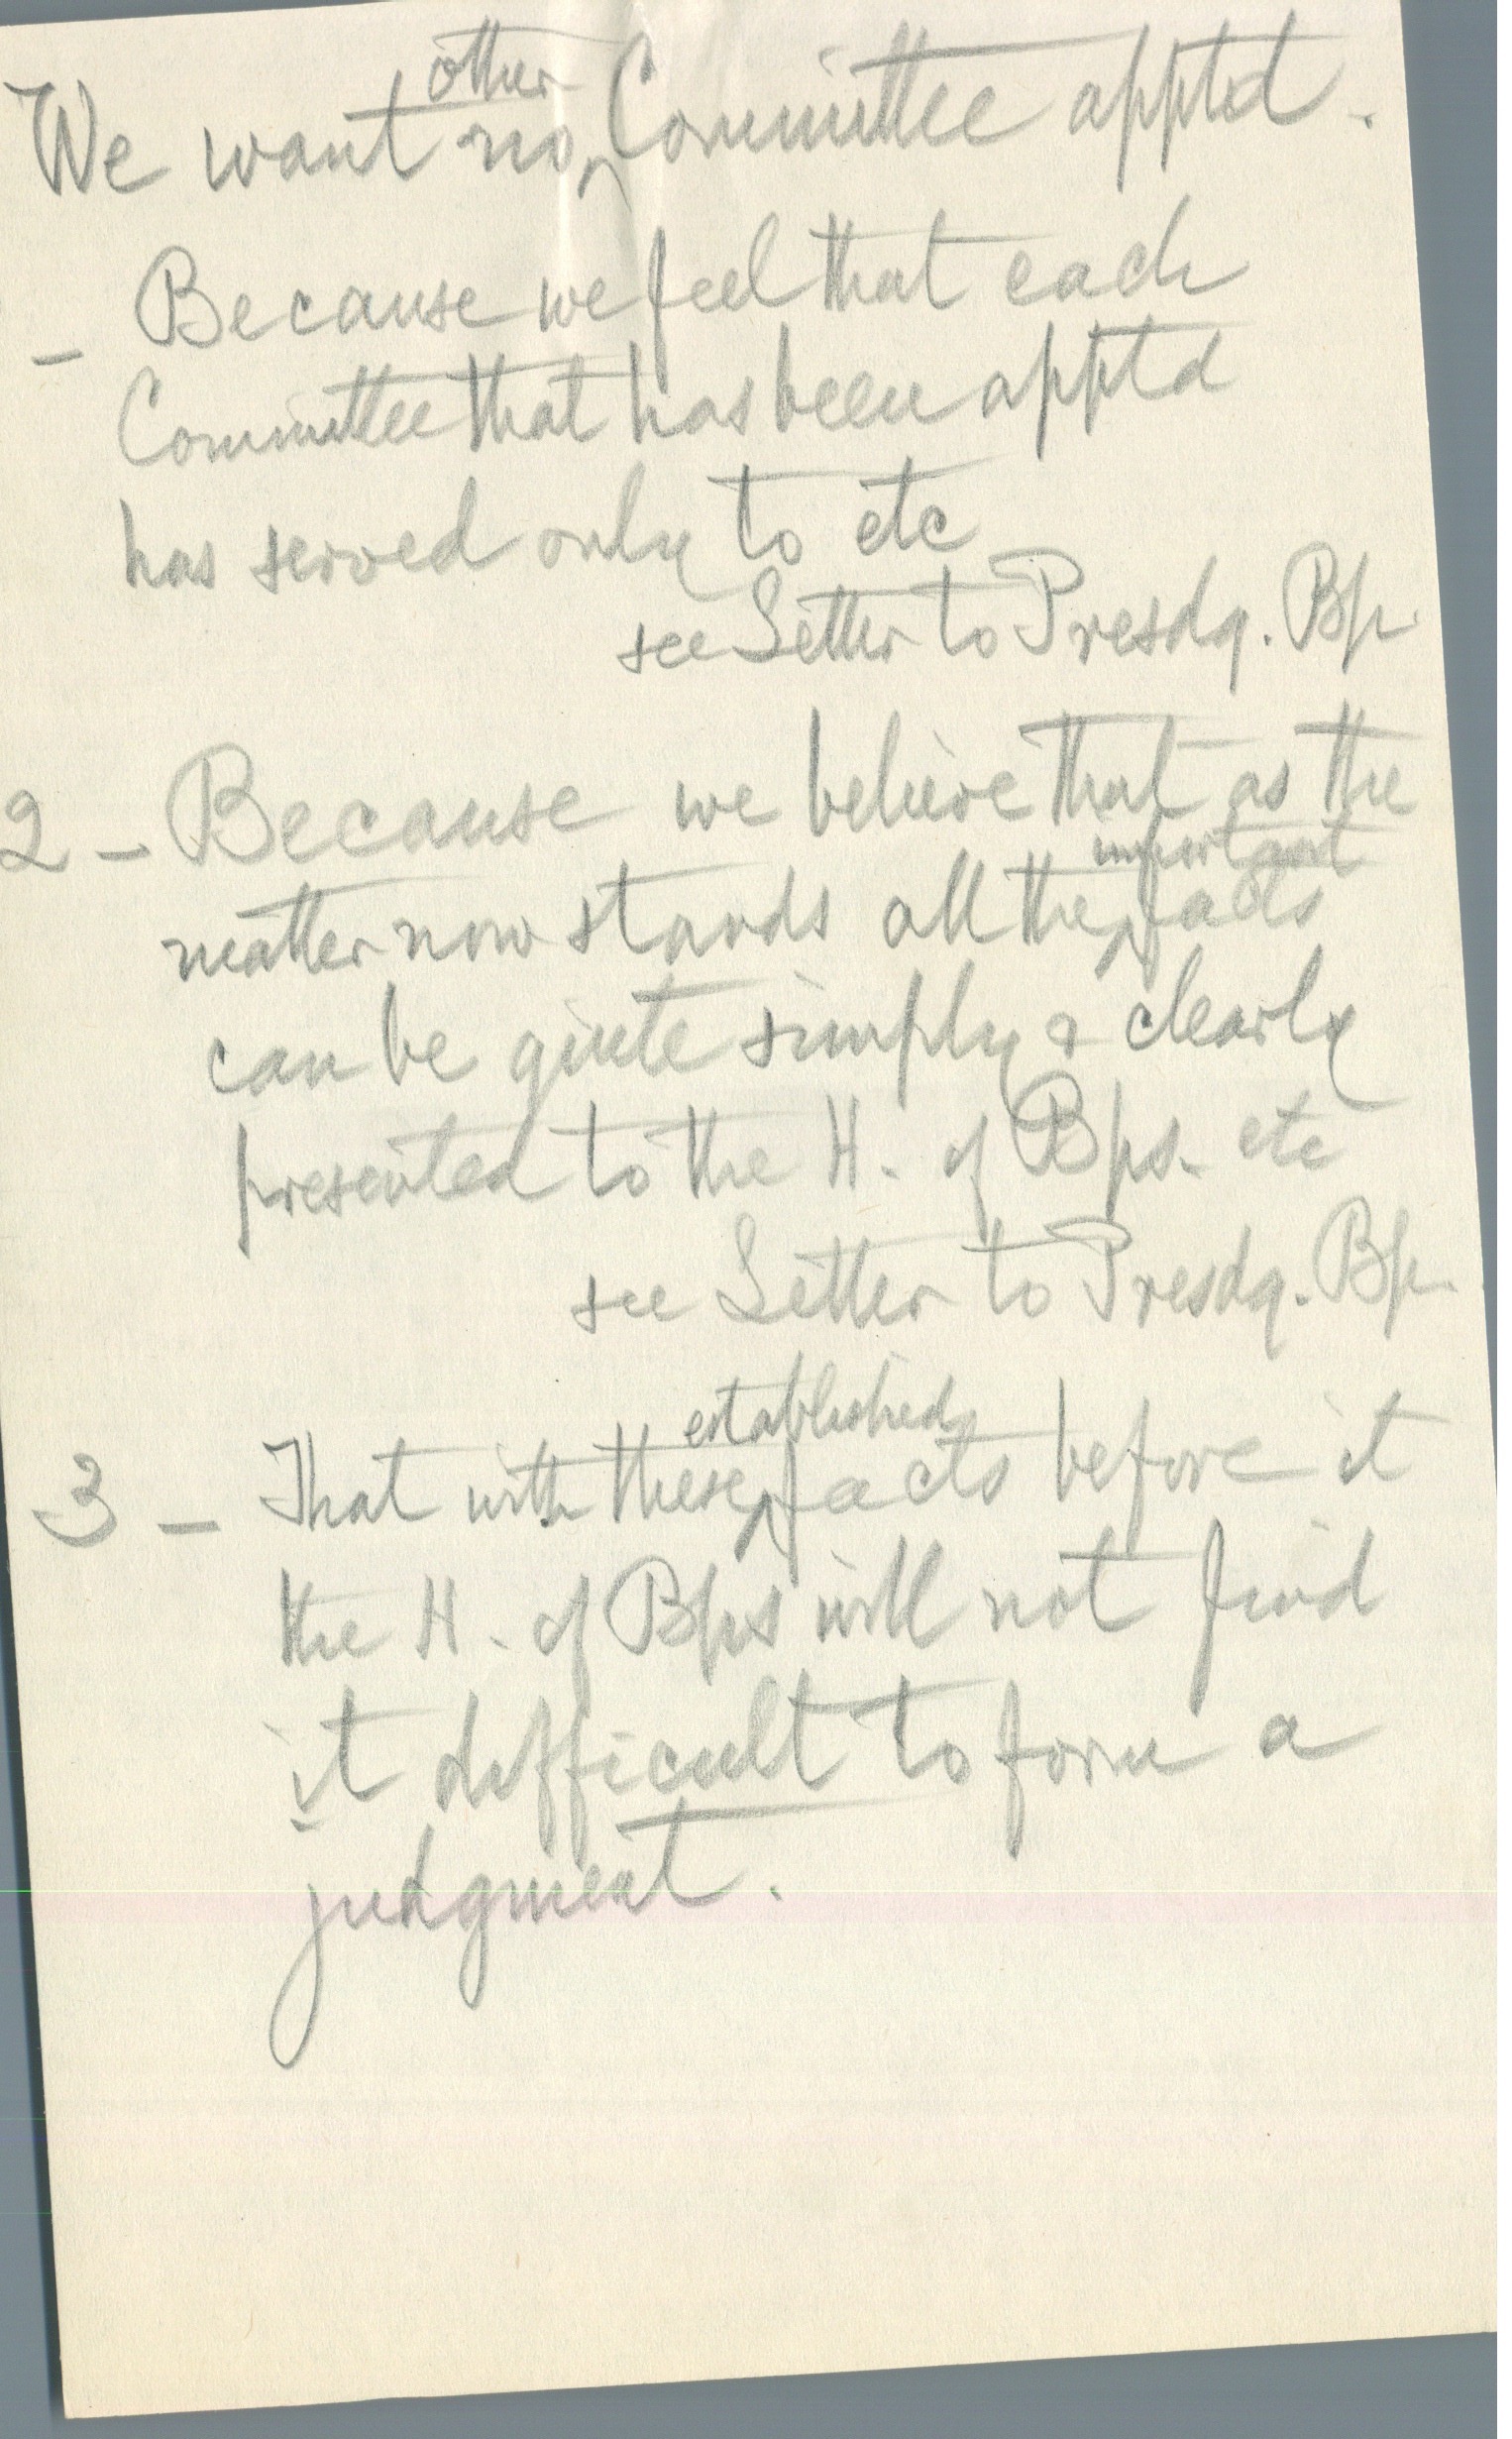 We want no other Committee apptd.
- Because we feel that each
Committee that has been apptd
has served only to etc
see Letter to Presdg. Bp.
2 - Because we believe that as the
matter now stands all the important facts
can be quite simply & clearly
presented to the H. of Bps. etc
see Letter to Presdg. Bp.
3 - That with these established facts before it
the H. of Bps will not find
it difficult to form a
judgment.